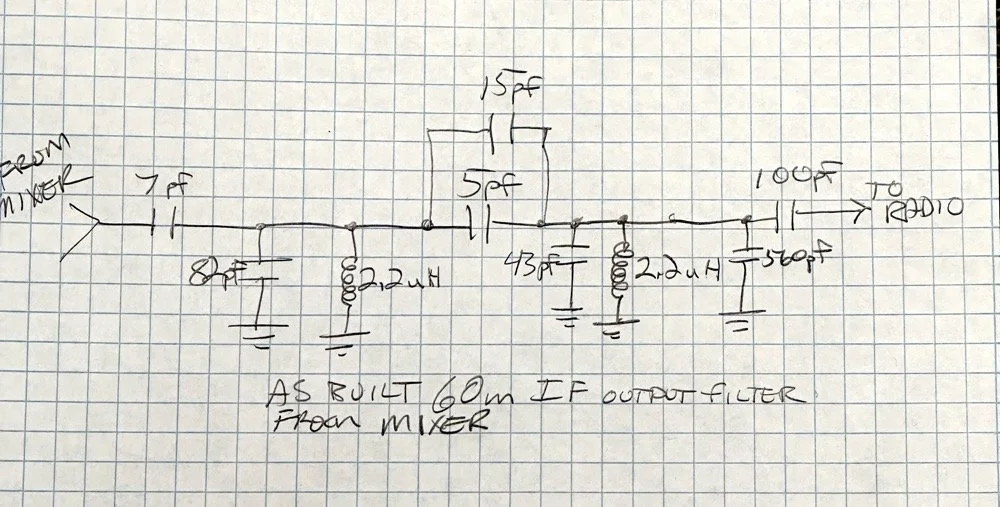 15pf
FROM
MIXER
7pf
5pf
100pf
TO
RADIO
82pf
2.2uH
43pf
2.2uH
560pf
AS BUILT 60m IF OUTPUT FILTER
FROM MIXER